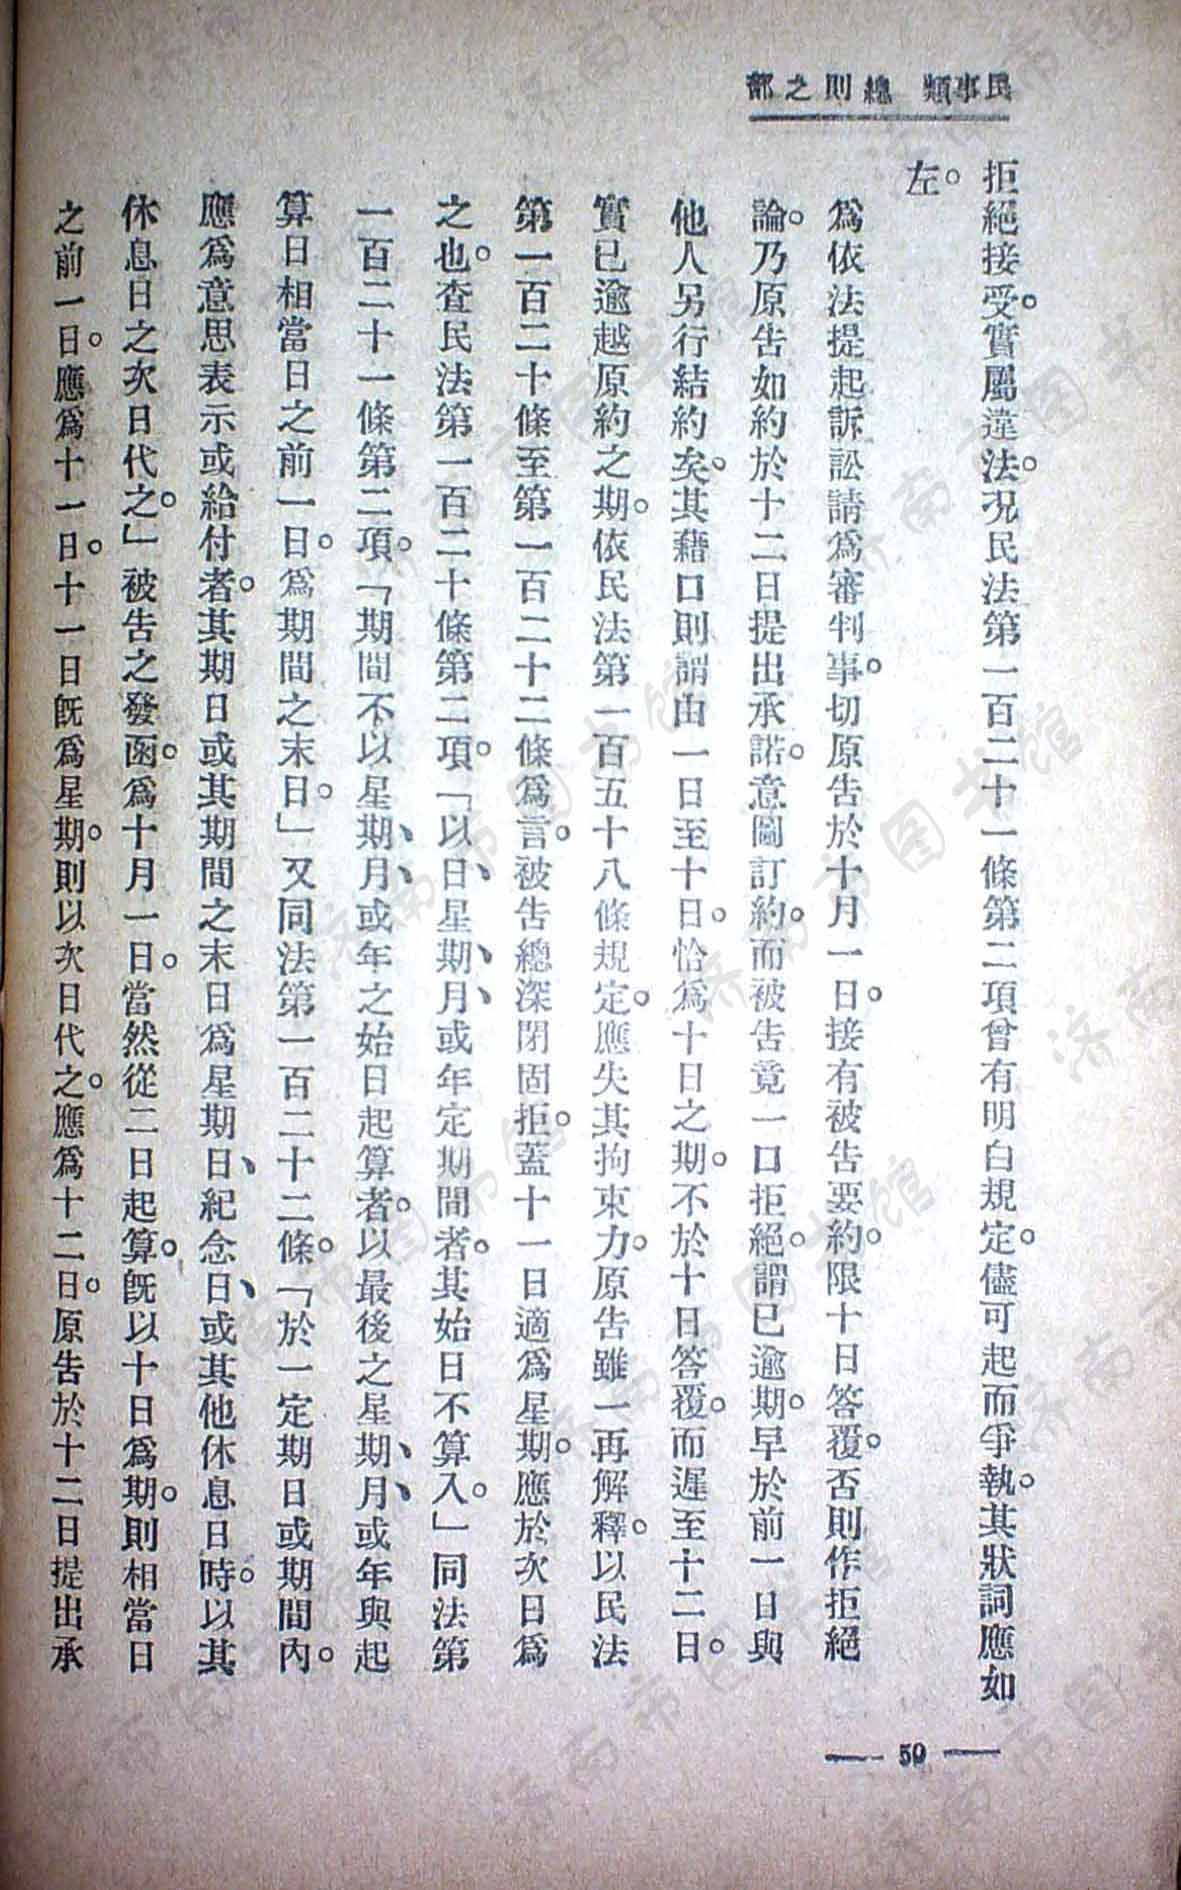 民事類　總則之部
拒絕接受。實屬違法。況民法第一百二十一條第二項曾有明白規定。儘可起而爭執。其狀詞應如
左。
爲依法提起訴訟請爲審判事。切原告於十月一日。接有被告要約。限十日答覆。否則作拒絕
論。乃原告如約於十二日提出承諾。意圖訂約。而被告竟一口拒絕。謂已逾期。早於前一日與
他人另行結約矣。其藉口則謂由一日至十日。恰爲十日之期。不於十日答覆。而遲至十二日。
實已逾越原約之期。依民法第一百五十八條規定。應失其拘束力。原告雖一再解釋。以民法
第一百二十條至第一百二十二條爲言。被告總深閉固拒。蓋十一日適爲星期。應於次日爲
之也。查民法第一百二十條第二項。「以日、星期、月、或年定期間者。其始日不算入。」同法第
一百二十一條第二項。「期間不以星期、月、或年之始日起算者。以最後之星期、月、或年與起
算日相當日之前一日。爲期間之末日。」又同法第一百二十二條。「於一定期日或期間內。
應爲意思表示或給付者。其期日或其期間之末日爲星期日、紀念日、或其他休息日時。以其
休息日之次日代之。」被告之發函。爲十月一日。當然從二日起算。旣以十日爲期。則相當日
之前一日。應爲十一日。十一日旣爲星期。則以次日代之。應爲十二日。原告於十二日提出承
— 59 —
济南市图书馆